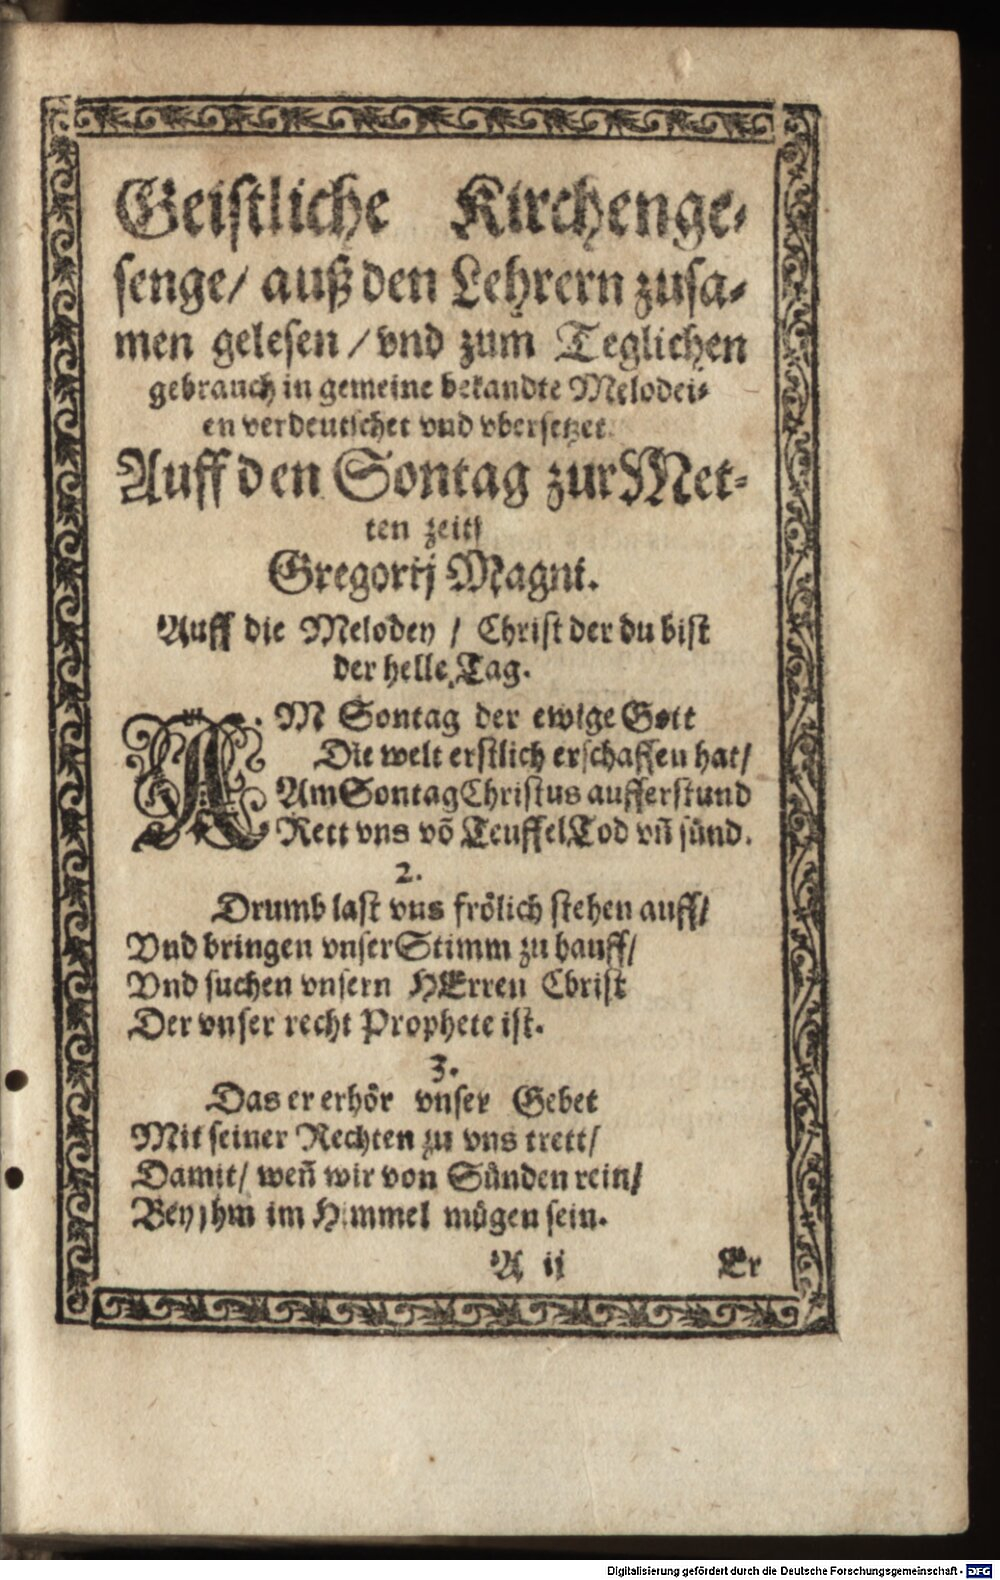 Geistliche Kirchenge-
senge/ auß den Lehrern zusa-
men gelesen / vnd zum Teglichen
gebrauch in gemeine bekandte Melodei-
en verdeutschet vnd vbersetzet.
Auff den Sontag zur Met-
ten zeit/
Gregorij Magni.
Auff die Melodey / Christ der du bist
der helle Tag.
AM Sontag der ewige Gott
Die welt erstlich erschaffen hat/
Am Sontag Christus aufferstund
Rett vns võ Teuffel Tod vñ sünd.
2.
Drumb last vns frölich stehen auff/
Vnd bringen vnser Stimm zu hauff/
Vnd suchen vnsern HErren Christ
Der vnser recht Prophete ist.
3.
Das er erhör vnser Gebet
Mit seiner Rechten zu vns trett/
Damit/ weñ wir von Sünden rein/
Bey jhm im Himmel mügen sein.
A ij Er
Digitalisierung gefördert durch die Deutsche Forschungsgemeinschaft - DFG